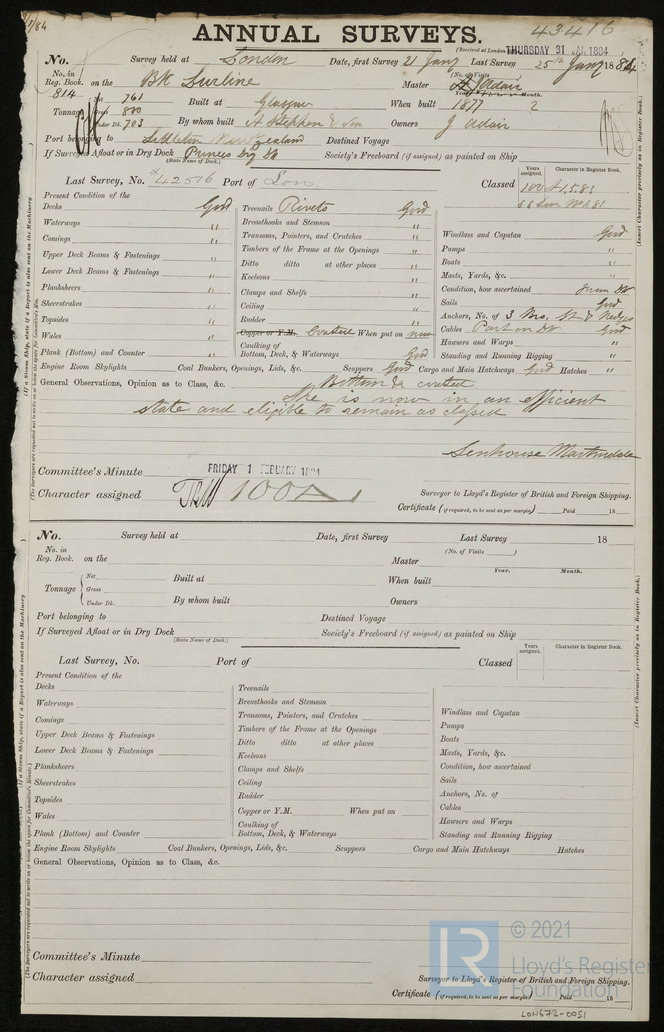 1/84
ANNUAL SURVEYS.
43416
(Received at London THURSDAY 31 JAN. 1884)
No. Survey held at London Date, first Survey 21 Jany Last Survey 25th Jany 1884
No. in Reg. Book. 814 on the Bk Lurline Master J Adair
(No. of Visits
Year. Month.
Tonnage Net 761 Gross 800 Under Dk. 703 Built at Glasgow When built 1877 2
By whom built A Stephen & Son Owners J Adair
Port belonging to Lyttleton New Zealand Destined Voyage
If Surveyed Afloat or in Dry Dock Princes Dry Dk Society's Freeboard (if assigned) as painted on Ship
(State Name of Dock.)
Last Survey, No. 42516 Port of Lon Classed
Years assigned. Character in Register Book.
100A1 5.83
Present Condition of the
Decks Good
Waterways "
Comings "
Upper Deck Beams & Fastenings "
Lower Deck Beams & Fastenings "
Planksheers "
Sheerstrakes "
Topsides "
Wales "
Plank (Bottom) and Counter "
Treenails Rivets Good
Breasthooks and Stemson "
Transoms, Pointers, and Crutches "
Timbers of the Frame at the Openings "
Ditto ditto at other places "
Keelsons "
Clamps and Shelfs "
Ceiling "
Rudder "
Copper or Y.M. Coated When put on now
Caulking of Bottom, Deck, & Waterways Good
Windlass and Capstan Good
Pumps "
Boats "
Masts, Yards, &c. "
Condition, how ascertained from Dk
Sails Good
Anchors, No. of 3 Bro, St & Kedges
Cables Part on Dk Good
Hawsers and Warps "
Standing and Running Rigging "
Engine Room Skylights Coal Bunkers, Openings, Lids, &c. Scuppers Good Cargo and Main Hatchways Good Hatches "
General Observations, Opinion as to Class, &c. Bottom &c coated.
She is now in an efficient
state and eligible to remain as classed
Senhouse Martindale
Committee's Minute FRIDAY 1 FEBUARY 1884
Character assigned 100A1
Surveyor to Lloyd's Register of British and Foreign Shipping.
Certificate (if required, to be sent as per margin) Paid 18
No. Survey held at Date, first Survey Last Survey 18
No. in Reg. Book. on the Master
(No. of Visits )
Year. Month.
Tonnage Net Gross Under Dk. Built at When built
By whom built Owners
Port belonging to Destined Voyage
If Surveyed Afloat or in Dry Dock Society's Freeboard (if assigned) as painted on Ship
(State Name of Dock.)
Last Survey, No. Port of Classed
Years assigned. Character in Register Book.
Present Condition of the
Decks
Waterways
Comings
Upper Deck Beams & Fastenings
Lower Deck Beams & Fastenings
Planksheers
Sheerstrakes
Topsides
Wales
Plank (Bottom) and Counter
Treenails
Breasthooks and Stemson
Transoms, Pointers, and Crutches
Timbers of the Frame at the Openings
Ditto ditto at other places
Keelsons
Clamps and Shelfs
Ceiling
Rudder
Copper or Y.M. When put on
Caulking of Bottom, Deck, & Waterways
Windlass and Capstan
Pumps
Boats
Masts, Yards, &c.
Condition, how ascertained
Sails
Anchors, No. of
Cables
Hawsers and Warps
Standing and Running Rigging
Engine Room Skylights Coal Bunkers, Openings, Lids, &c. Scuppers Cargo and Main Hatchways Hatches
General Observations, Opinion as to Class, &c.
Committee's Minute
Character assigned
Surveyor to Lloyd's Register of British and Foreign Shipping.
Certificate (if required, to be sent as per margin) Paid 18
(Insert Character precisely as in Register Book.)
(Insert Character precisely as in Register Book.)
© 2021
LR
Lloyd's Register
Foundation
LON672-0051